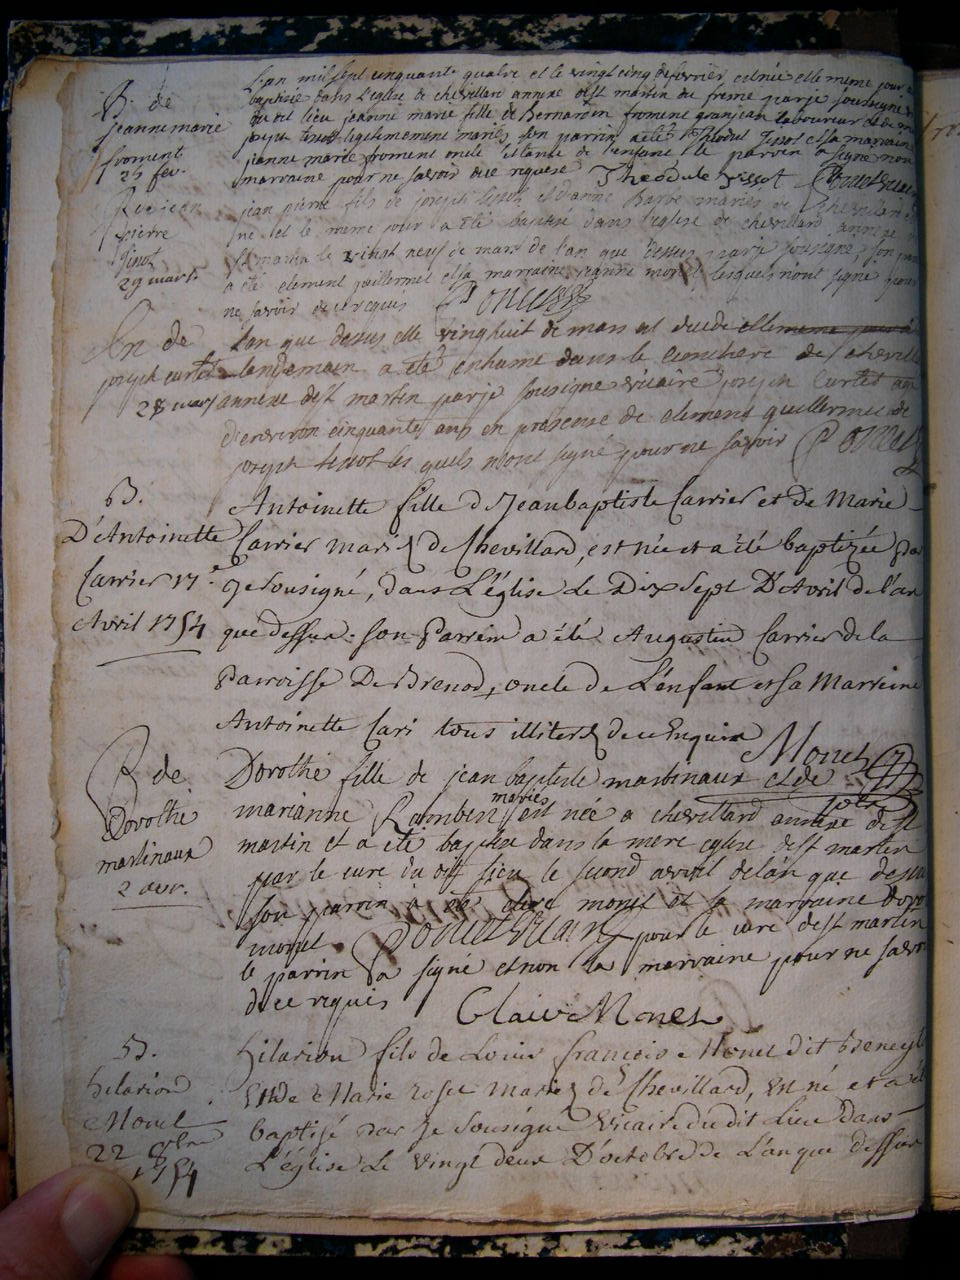 B. de
jeanne marie
froment
25 fev.
L'an mil sept cinquante quatre et le vingt cinq de fevrier est née et le meme jour a
baptisée dans l'eglise de chevillard annexe de st martin du fresne par je soussigné
du dit lieu jeanne marie fille de Bernardin froment granjean laboureur et de
tissot legitimement mariés son parrin a été Theodul Tissot et sa marraine
jeanne marie froment oncle et tante de l'enfant le parrin a signé non
marraine pour ne savoir de ce requise Theodule Tissot
B de jean
pierre
Tissot
29 mars
jean pierre fils de joseph tissot et d'anne Barbe mariés de Chevillard est
né et le meme jour a été baptisé dans l'eglise de chevillard annexe de
st martin le vingt neuf de mars de l'an que dessus par je soussigné son parrin
a été clement guillermet et sa marraine lesquels n'ont signé pour
ne savoir de ce requis Ponct
En de
joseph curtet
28 mars
L'an que dessus et le vinghuit de mars est decede et le meme jour a
lendemain a été enhumé dans le cimetiere de chevill
annexe de st martin par je sousigné vicaire joseph Curtet agé
d'environ cinquante ans en presense de clement guillermet de
joseph tissot les quels n'ont signé pour ne savoir
B.
D'Antoinette
Carrier 17e
Avril 1754
Antoinette fille de Jean baptiste Carrier et de Marie
Carrier mariés de Chevillard, est née et a été baptizée par
Je sousigné, dans L'église Le Dix Sept D'Avril de l'an
que dessus. son Parrein a été Augustin Carrier de la
Parroisse De Brenod, oncle de L'enfant et sa Marreine
Antoinette Cari tous illiterés de ce Enquis Monet
B de
Dorothé
martinaux
2 avr.
Dorothé fille de jean baptiste martinaux et de
marianne mariés est née a chevillard annexe de st
martin et a été baptisée dans la mere eglise de st martin
par le curé du dit lieu le second avril de l'an que dessus
son parrin a été claire monet et sa marraine doro
monet pour le curé de st martin
le parrin a signé et non la marraine pour ne savoir
de ce requis Claire Monet
B.
hilarion
Monet
22 8bre
1754
hilarion fils de Louis françois Monet dit Beney
Et de Marie rose mariés de Chevillard, est né et a été
baptisé par Je sousigné Vicaire du dit Lieu dans
L'église Le Vingt deux D'octobre de L'an que dessus